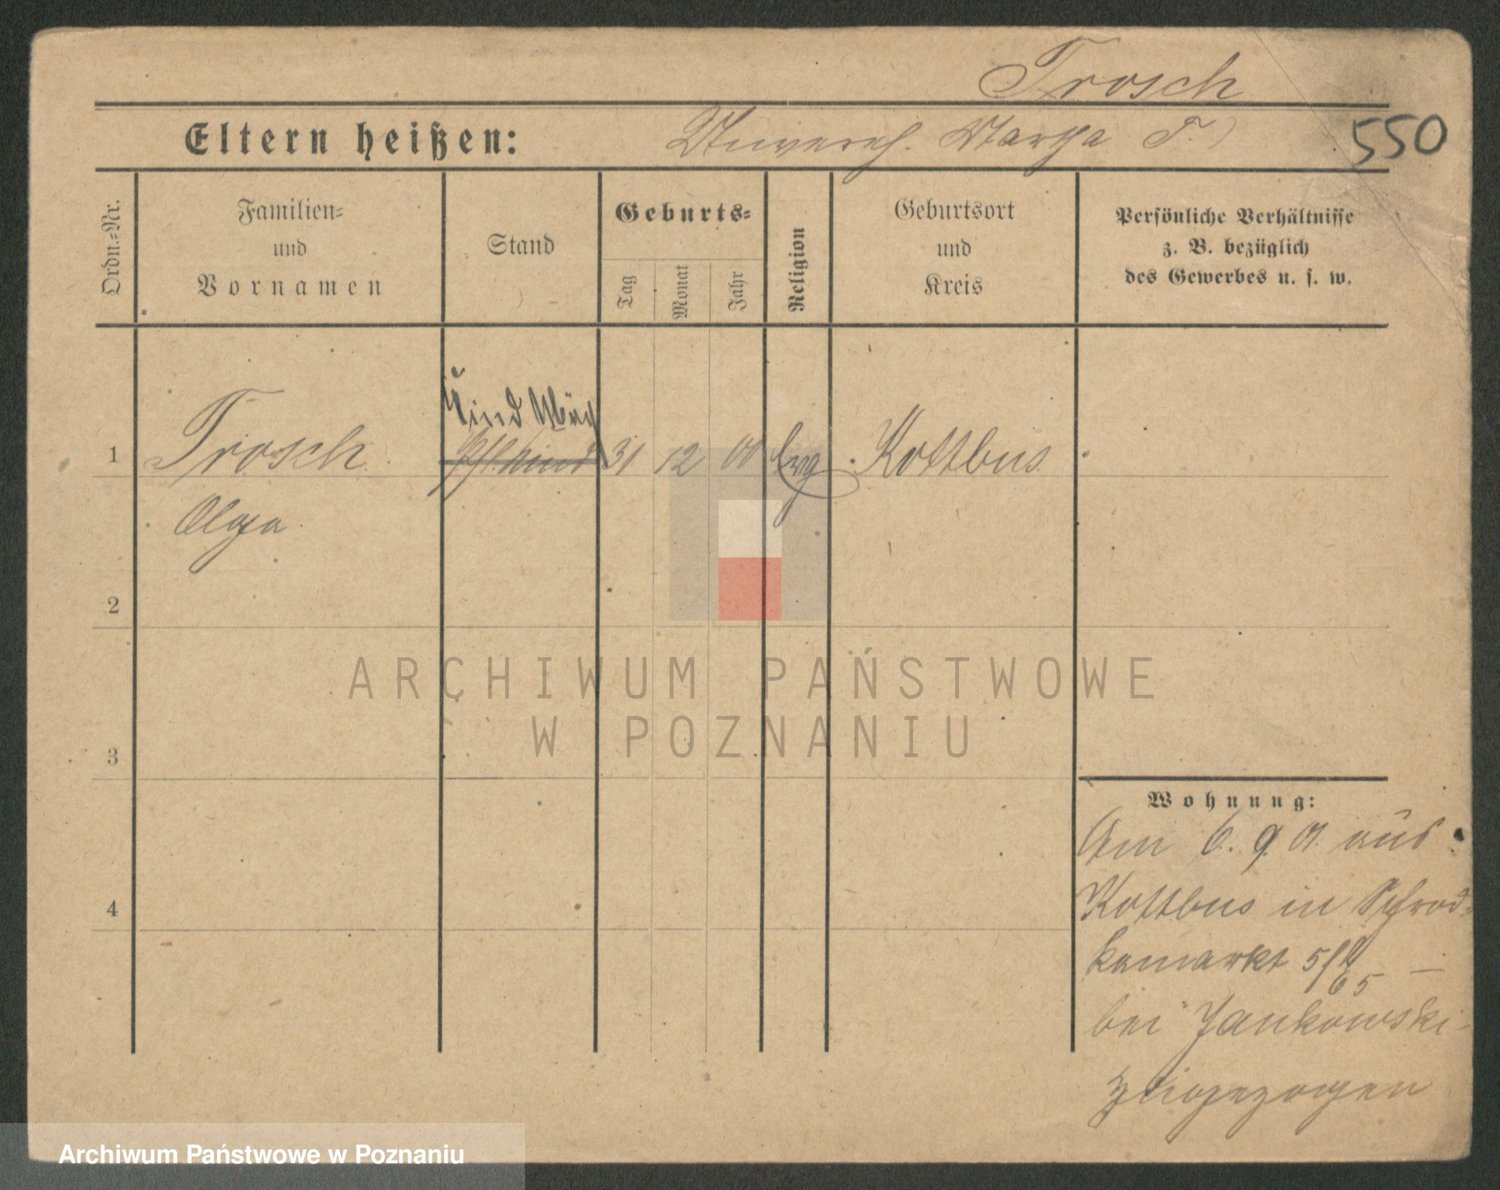 Trosch
Eltern heißen: Unvereh. Martha T.)
550
Ordn.-Nr.
Familien-
und
Vornamen
Stand
Geburts-
Tag
Monat
Jahr
Religion
Geburtsort
und
Kreis
Persönliche Verhältnisse
z. B. bezüglich
des Gewerbes u. s. w.
Kind
1 Trosch Pflkind 31 12 00 evg Kottbus
Olga
2
ARCHIWUM PAŃSTWOWE
W POZNANIU
3
Wohnung:
Am 6. 9. 01. aus
Kottbus in Schrod-
4
kamarkt 5/6
65
bei Jankowski
zugezogen
Archiwum Państwowe w Poznaniu